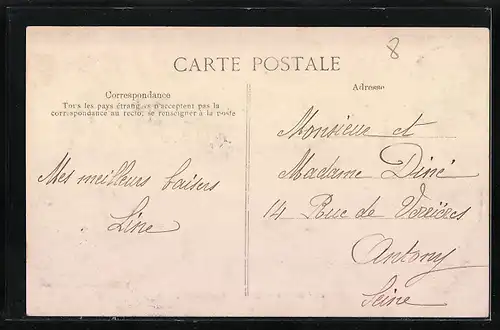 8
CARTE POSTALE
Correspondance
Tous les pays étrangers n'acceptent pas la
correspondance au recto, se renseigner à la poste
Mes meilleurs baisers
Line
Adresse
Monsieur et
Madame Diné
14 Rue de Verières
Antony
Seine